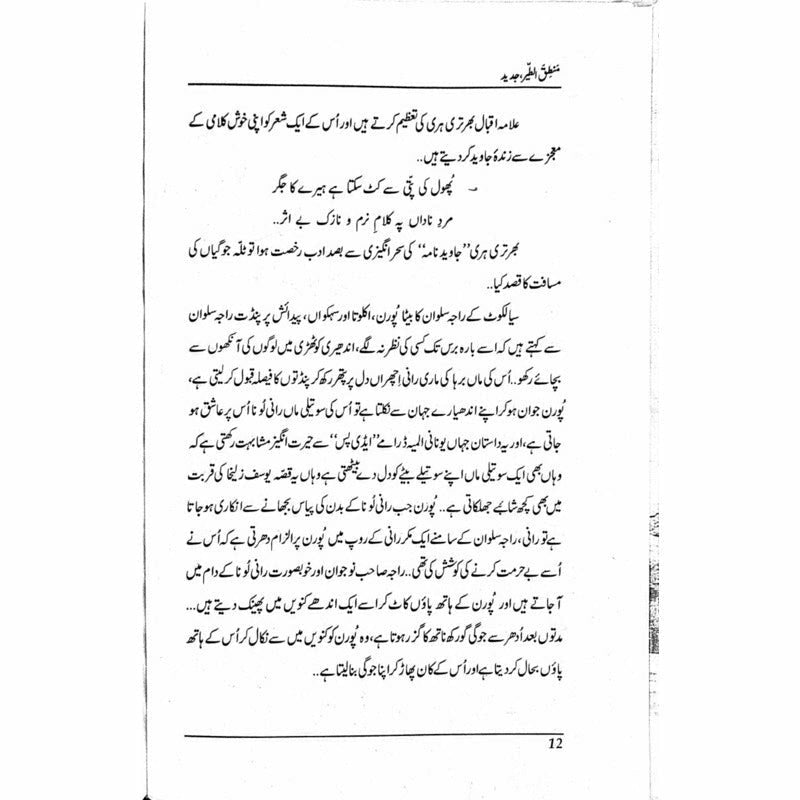 منطق الطیر، جدید
علامہ اقبال بھرتری ہری کی تعظیم کرتے ہیں اور اُس کے ایک شعر کو اپنی خوش کلامی کے
معجزے سے زندۂ جاوید کر دیتے ہیں..
پُھول کی پتّی سے کٹ سکتا ہے ہیرے کا جگر
مردِ ناداں پہ کلامِ نرم و نازک بے اثر..
بھرتری ہری ”جاوید نامہ“ کی سحر انگیزی سے بصد ادب رخصت ہوا تو ٹلّہ جوگیاں کی
مسافت کا قصد کیا..
سیالکوٹ کے راجہ سلوان کا بیٹا پُورن، اکلوتا اور سہکواں، پیدائش پر پنڈت راجہ سلوان
سے کہتے ہیں کہ اسے بارہ برس تک کسی کی نظر نہ لگے، اندھیری کوٹھڑی میں لوگوں کی آنکھوں سے
بچائے رکھو.. اُس کی ماں برہا کی ماری رانی اِچھراں دل پر پتھر رکھ کر پنڈتوں کا فیصلہ قبول کر لیتی ہے،
پُورن جوان ہو کر اپنے اندھیارے جہان سے نکلتا ہے تو اُس کی سوتیلی ماں رانی لُونا اُس پر عاشق ہو
جاتی ہے، اور یہ داستان جہاں یونانی المیہ ڈرامے ”ایڈی پس“ سے حیرت انگیز مشابہت رکھتی ہے کہ
وہاں بھی ایک سوتیلی ماں اپنے سوتیلے بیٹے کو دل دے بیٹھتی ہے وہاں یہ قصہ یوسف زلیخا کی قربت
میں بھی کچھ شائبے جھلکاتی ہے.. پُورن جب رانی لُونا کے بدن کی پیاس بجھانے سے انکاری ہو جاتا
ہے تو رانی، راجہ سلوان کے سامنے ایک مکر رانی کے روپ میں پُورن پر الزام دھرتی ہے کہ اُس نے
اُسے بے حرمت کرنے کی کوشش کی تھی.. راجہ صاحب نوجوان اور خوبصورت رانی لُونا کے دام میں
آ جاتے ہیں اور پُورن کے ہاتھ پاؤں کاٹ کر اسے ایک اندھے کنویں میں پھینک دیتے ہیں...
مدتوں بعد اُدھر سے جوگی گورکھ ناتھ کا گزر ہوتا ہے، وہ پُورن کو کنویں میں سے نکال کر اُس کے ہاتھ
پاؤں بحال کر دیتا ہے اور اُس کے کان پھاڑ کر اپنا جوگی بنا لیتا ہے..
12